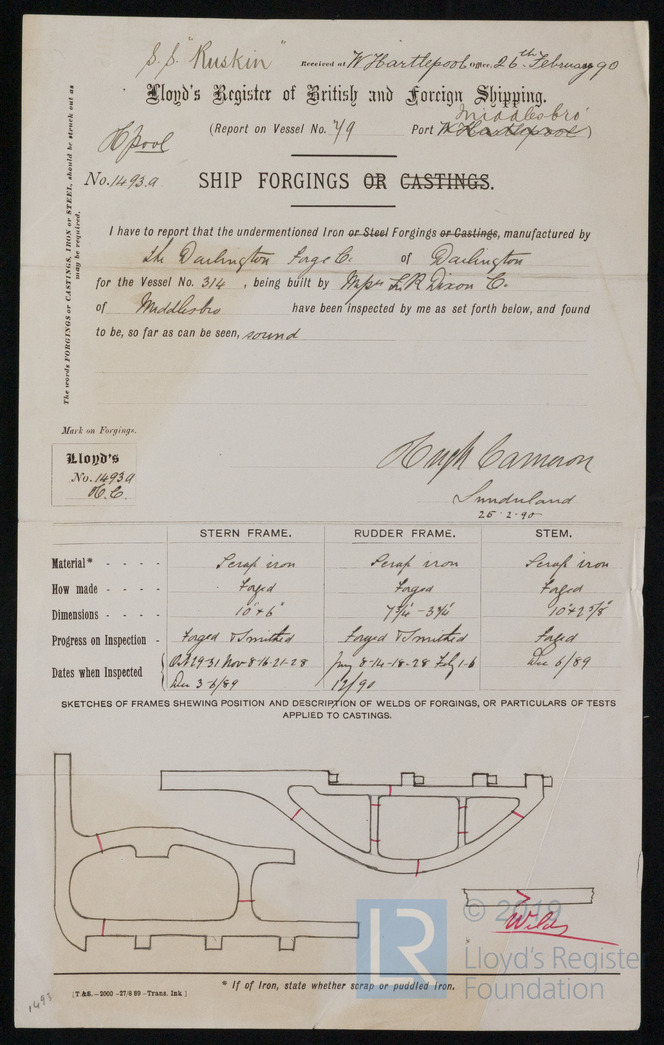 S.S. "Ruskin"
Received at W Hartlepool Office, 26th February 90
Lloyd's Register of British and Foreign Shipping.
(Report on Vessel No. 79 Port W Hartlepool)
Middlesbro'
H'pool
No. 1493a
SHIP FORGINGS OR CASTINGS.
The words FORGINGS or CASTINGS, IRON or STEEL, should be struck out as
may be required.
I have to report that the undermentioned Iron or Steel Forgings or Castings, manufactured by
the Darlington Forge Co. of Darlington
for the Vessel No. 314, being built by Messrs R Dixon Co.
of Middlesbro have been inspected by me as set forth below, and found
to be, so far as can be seen, sound
Mark on Forgings.
Lloyd's
No. 1493a
H.C.
Hugh Cameron
Sunderland
25.2.90
STERN FRAME. RUDDER FRAME. STEM.
Material* - - - - Scrap iron Scrap iron Scrap iron
How made - - - - Forged Forged Forged
Dimensions - - - - 10" x 6" 10" x 2 5/8"
Progress on Inspection - Forged & Smithed Forged & Smithed Forged
Dates when Inspected Oct 29-31 Nov 8-16-21-28 Jany 8-14-18-28 Feby 1-6 Dec 6/89
Dec 3-6/89 12/90
SKETCHES OF FRAMES SHEWING POSITION AND DESCRIPTION OF WELDS OF FORGINGS, OR PARTICULARS OF TESTS
APPLIED TO CASTINGS.
Welds
© 2019
LR
Lloyd's Registe
Foundation
* If of Iron, state whether scrap or puddled Iron.
[T.&S.—2000—27/8 89—Trans. Ink.]
1493